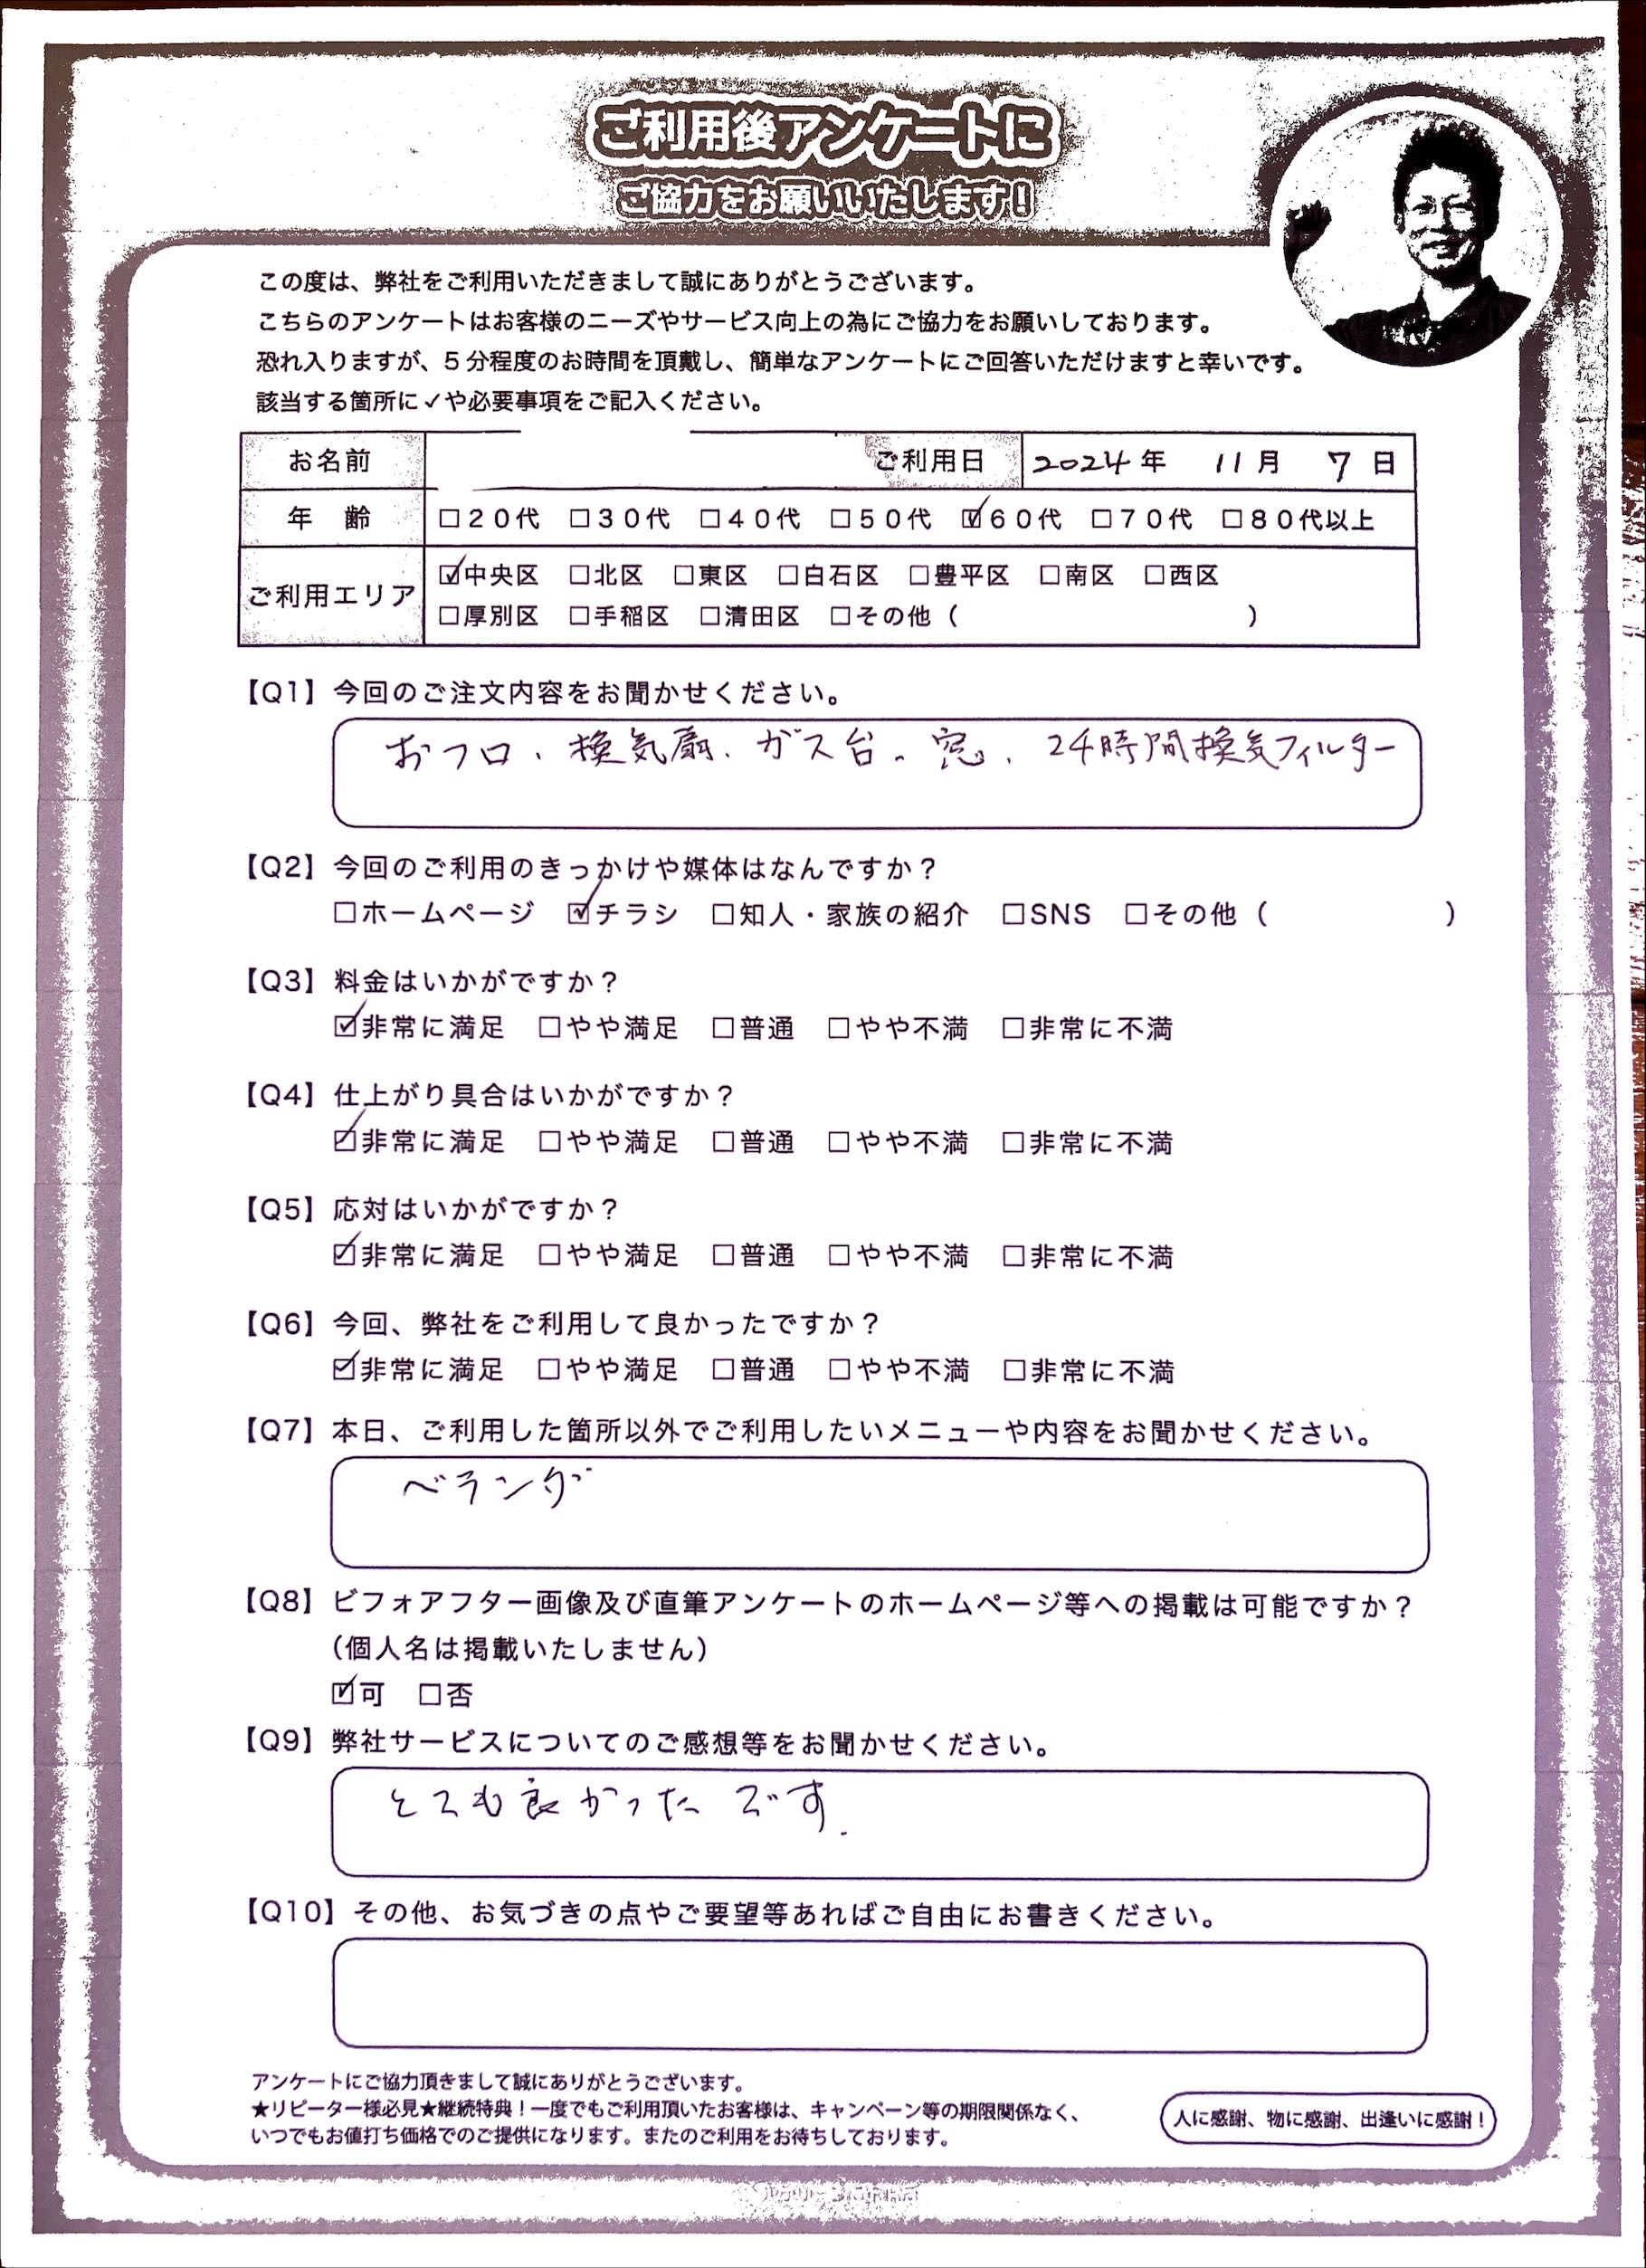 ご利用後アンケートに
ご協力をお願いいたします!
この度は、弊社をご利用いただきまして誠にありがとうございます。
こちらのアンケートはお客様のニーズやサービス向上の為にご協力をお願いしております。
恐れ入りますが、5分程度のお時間を頂戴し、簡単なアンケートにご回答いただけますと幸いです。
該当する箇所に✓や必要事項をご記入ください。
お名前 ご利用日 2024年 11月 7日
年 齢 □20代 □30代 □40代 □50代 ☑60代 □70代 □80代以上
ご利用エリア ☑中央区 □北区 □東区 □白石区 □豊平区 □南区 □西区
□厚別区 □手稲区 □清田区 □その他( )
【Q1】今回のご注文内容をお聞かせください。
おフロ、換気扇、ガス台。窓、24時間換気フィルター
【Q2】今回のご利用のきっかけや媒体はなんですか?
□ホームページ ☑チラシ □知人・家族の紹介 □SNS □その他( )
【Q3】料金はいかがですか?
☑非常に満足 □やや満足 □普通 □やや不満 □非常に不満
【Q4】仕上がり具合はいかがですか?
☑非常に満足 □やや満足 □普通 □やや不満 □非常に不満
【Q5】応対はいかがですか?
☑非常に満足 □やや満足 □普通 □やや不満 □非常に不満
【Q6】今回、弊社をご利用して良かったですか?
☑非常に満足 □やや満足 □普通 □やや不満 □非常に不満
【Q7】本日、ご利用した箇所以外でご利用したいメニューや内容をお聞かせください。
ベランダ
【Q8】ビフォアフター画像及び直筆アンケートのホームページ等への掲載は可能ですか?
(個人名は掲載いたしません)
☑可 □否
【Q9】弊社サービスについてのご感想等をお聞かせください。
とても良かったです.
【Q10】その他、お気づきの点やご要望等あればご自由にお書きください。
アンケートにご協力頂きまして誠にありがとうございます。
★リピーター様必見★継続特典!一度でもご利用頂いたお客様は、キャンペーン等の期限関係なく、
いつでもお値打ち価格でのご提供になります。またのご利用をお待ちしております。
人に感謝、物に感謝、出逢いに感謝!